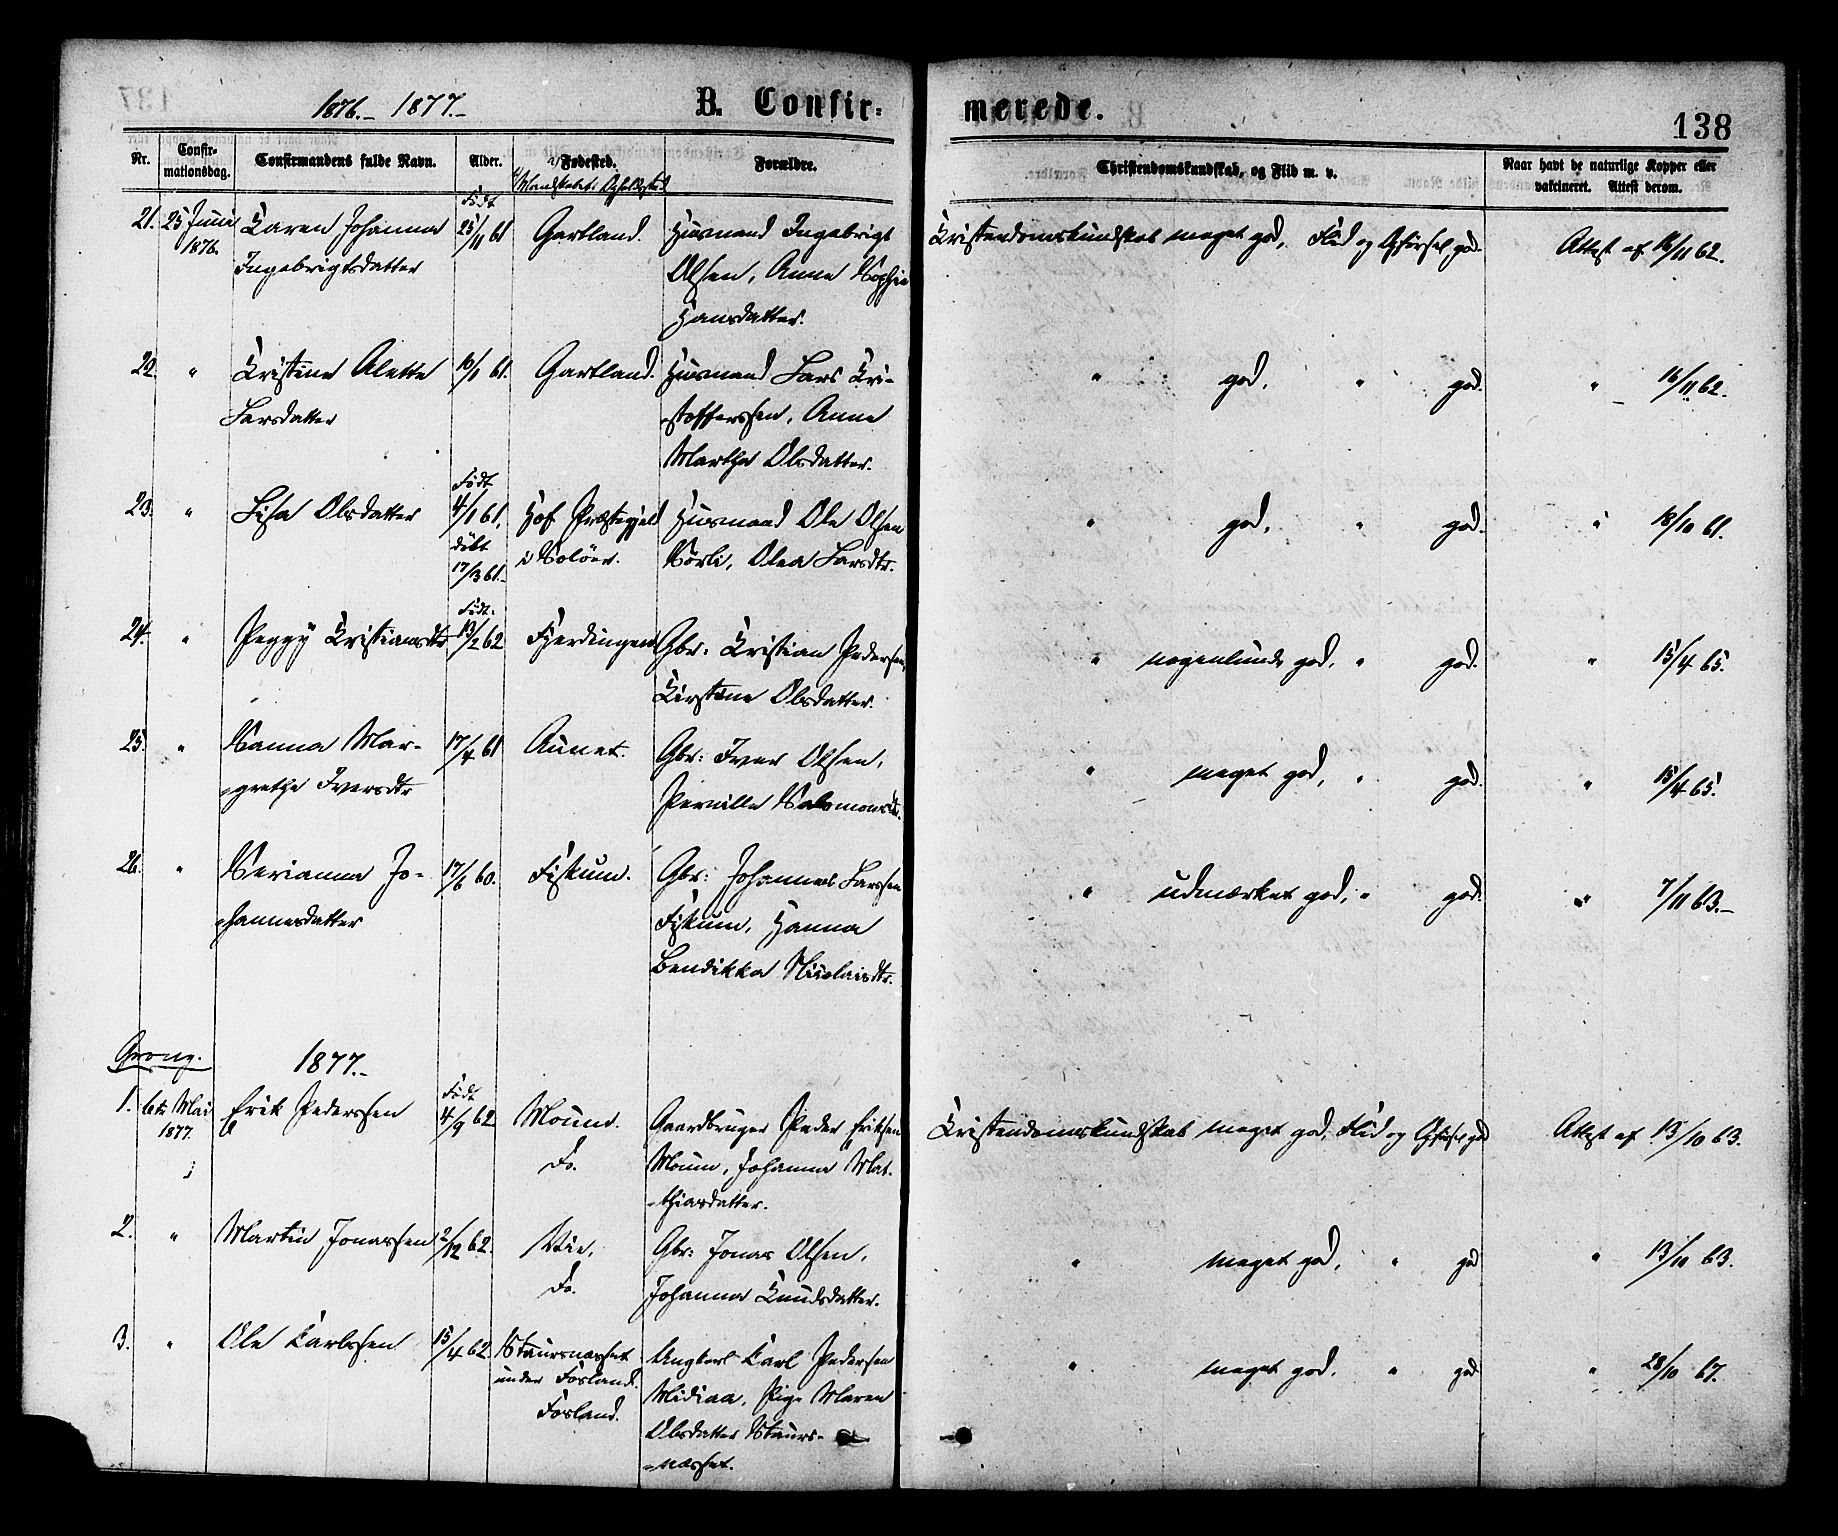 1876.- 1877.- B. Confir= merede. 138
Nr. Confir-mationsdag. Confirmandens fulde Navn. Alder. Fødested. Forældre. Christendomskundskab, og Flid m. v. Naar havt de naturlige Kopper eller vakcineret. Attest derom.
21. 25 Juni 1876. Karen Johanna Ingebrigtsdatter Født 25/11 61 Gartland. Husmand Ingebrigt Olsen, Anne Sophie Hansdatter. Kristendomskundskab meget god, Flid og Opførsel god. Attest af 16/11 62.
22. " Kristine Alette Larsdatter 10/1 61. Gartland. Husmand Lars Kri-stofferssen, Anne Martha Olsdatter. " god, " god. " 16/11 62.
23. " Lisa Olsdatter Født 4/1 61. døbt 17/3 61.- Hof Præstegjeld i Soløer. Husmand Ole Olsen Sørli, Olea Larsdtr. " god, " god. " 18/10 61.
24. " Peggy Kristiansdtr Født: 13/2 62 Fjerdingen Gbr: Kristian Pedersen, Kirstine Olsdatter. " nogenlunde god, " god. " 15/4 65.
25. " Sanna Mar-grethe Iversdtr 17/4 61 Aunet. Gbr: Iver Olsen, Pernille Salomonsdtr. " meget god, " god. " 15/4 65.
26. " Serianna Jo-hannesdatter 17/6 60. Fiskum. Gbr: Johannes Larssen Fiskum, Hanna Bendikka Nicolaisdtr. " udmærket god, " god. " 7/11 63.-
Grong. 1877.-
1. 6te Mai 1877. Erik Pederssen Født 4/9 62 Moum. Do. Gaardbruger Peder Eriksen Moum, Johanna Mat-thiasdatter. Kristendomskundskab meget god, Flid og Opførsel god Attest af 13/10 63.
2. " Martin Jonassen 2/12 62. Vie. Do. Gbr: Jonas Olsen, Johanna Knudsdatter. " meget god, " god " 13/10 63.
3. " Ole Karlssen 15/4 62 Staursnæsset under Fosland. Fosland. Ungkarl Karl Pedersen Midiaa, Pige Maren Olsdatter Staurs-næsset. " meget god. " god " 28/10 67.